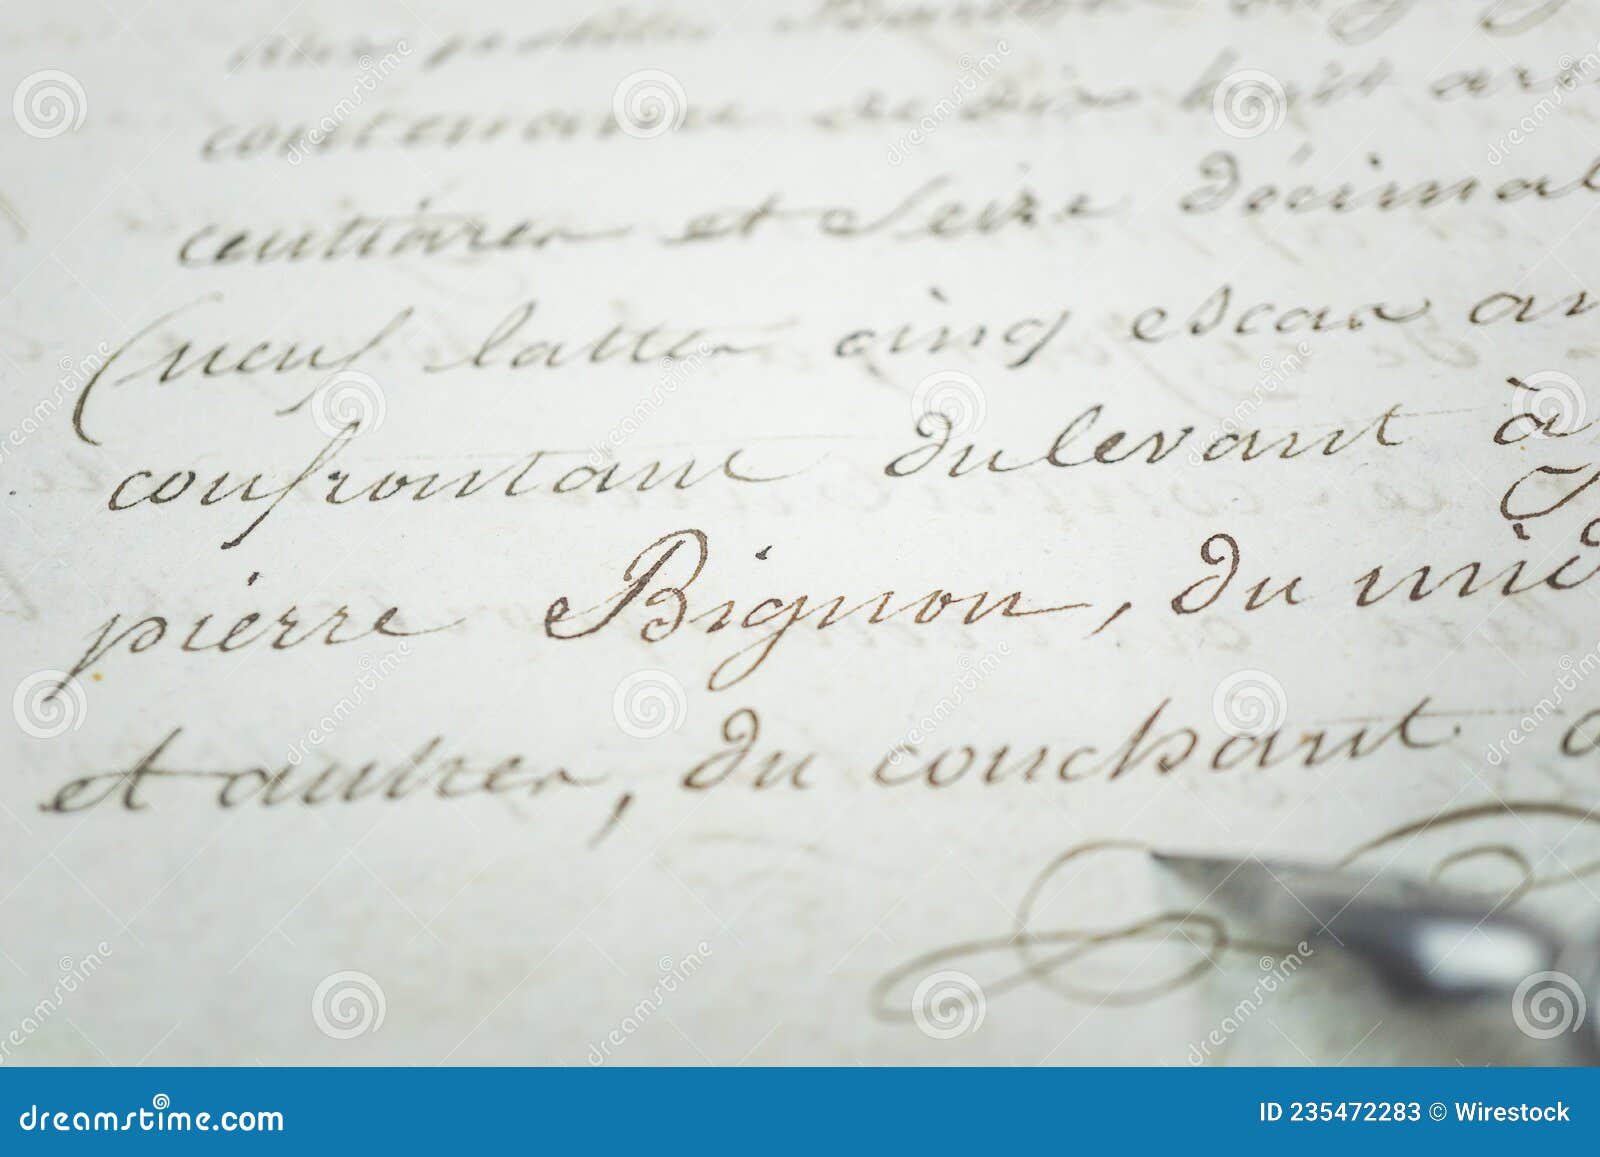 contenance de dix huit
centiares et seize décimal
(neuf latter cinq escar ar
confrontant du levant à
pierre Bignon, du mid
et autres, du couchant
dreamstime.com
ID 235472283 © Wirestock